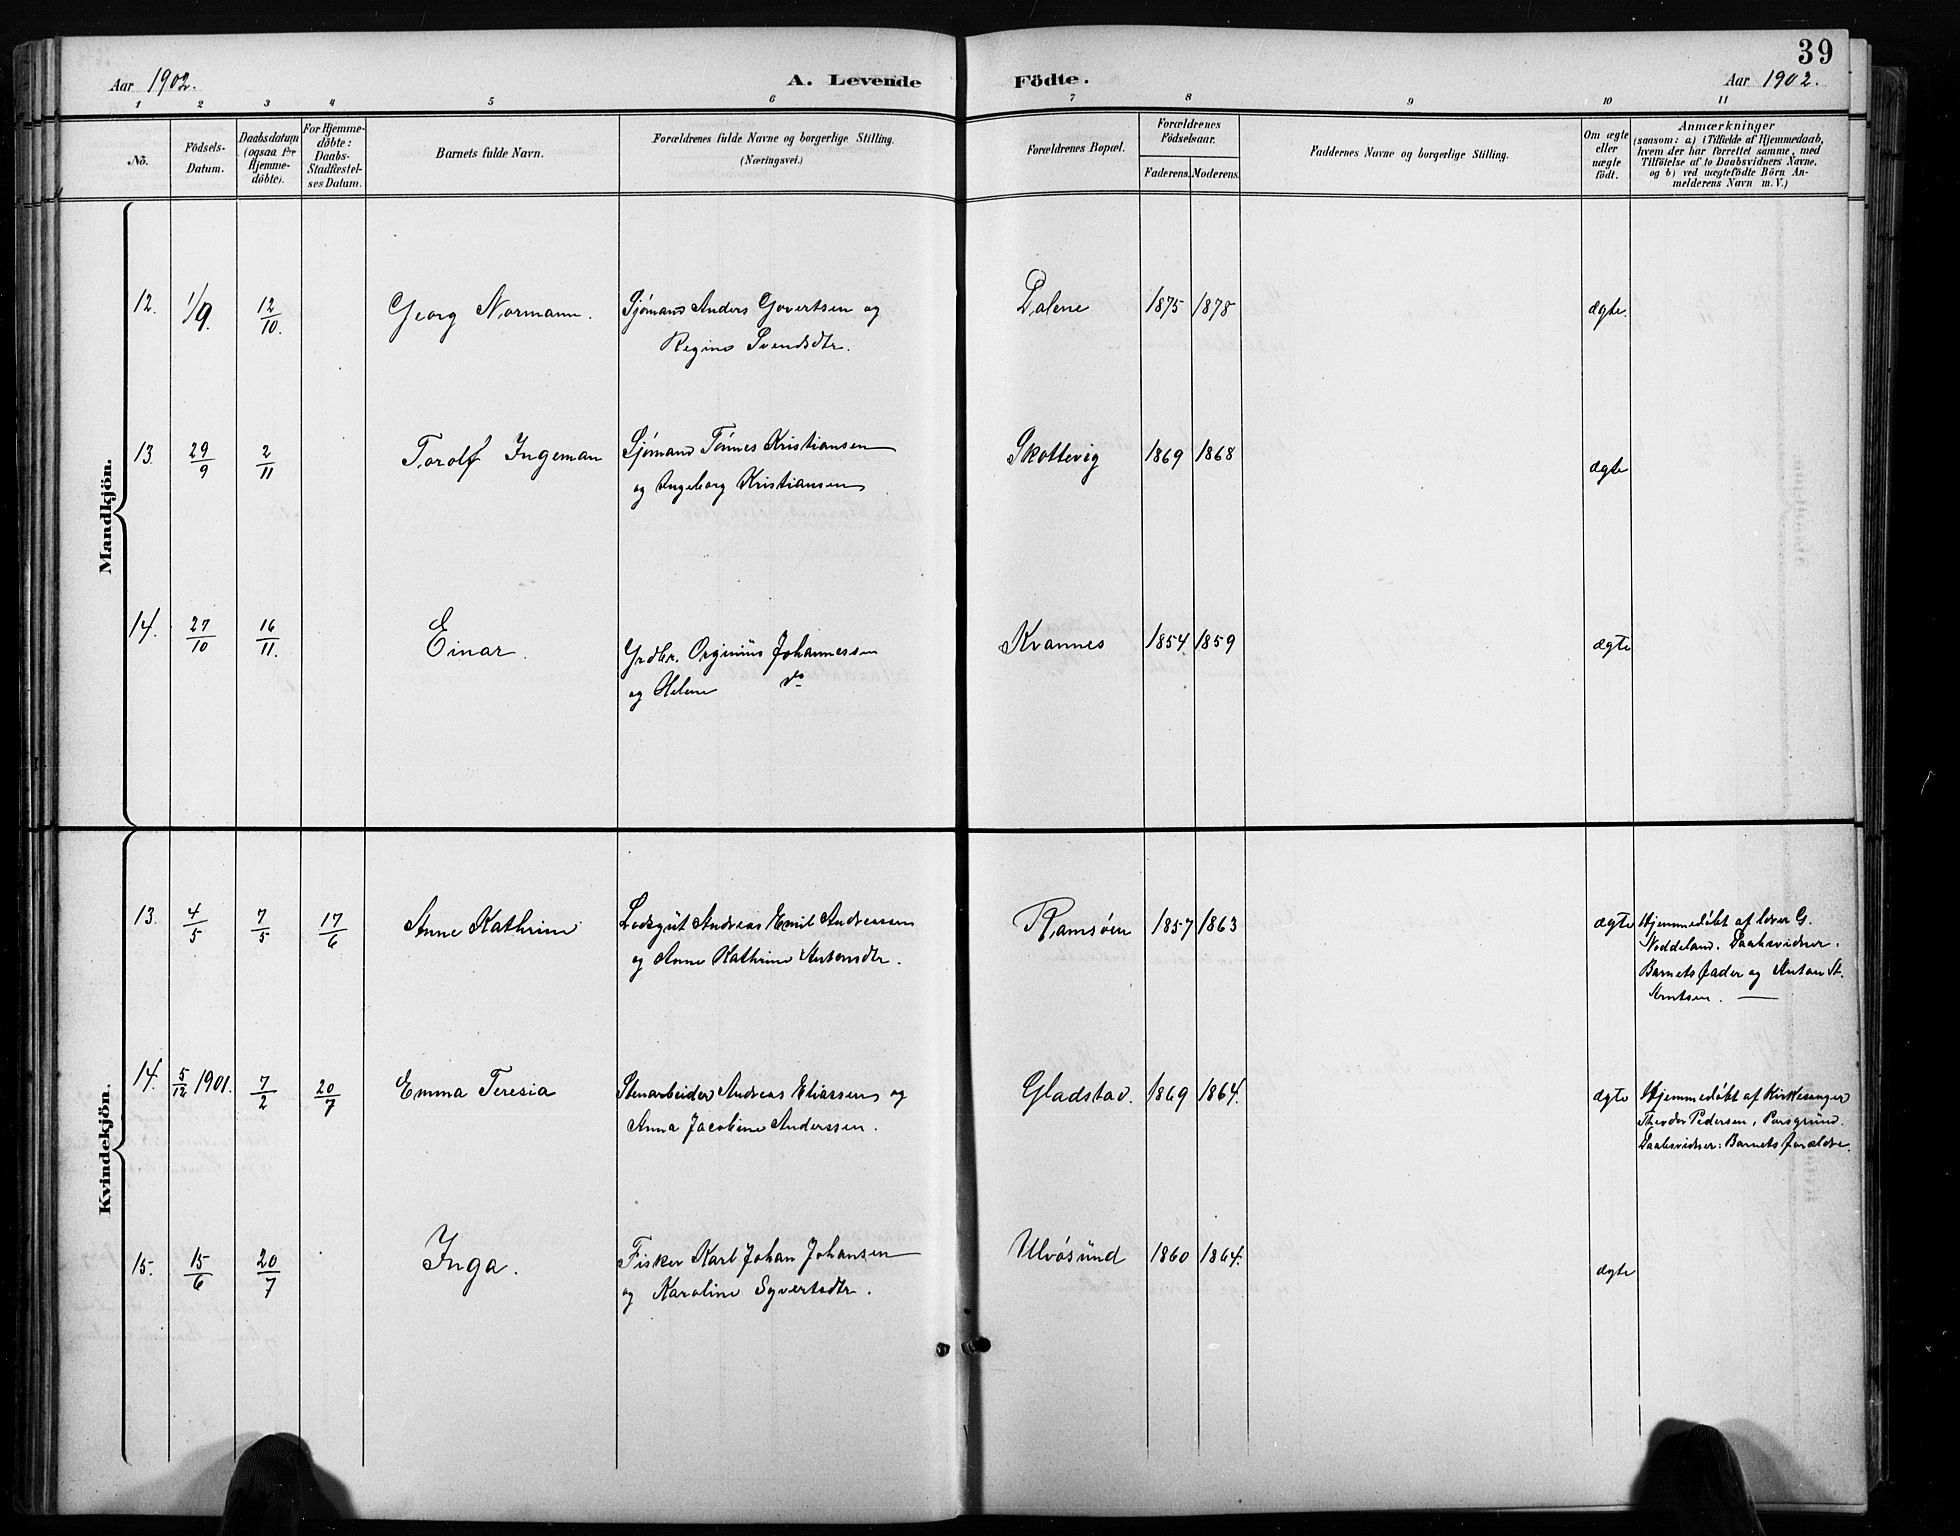 39
Aar 1902. A. Levende Födte. Aar 1902.
1 2 3 4 5 6 7 8 9 10 11
No.
Födsels-
Datum.
Daabsdatum
(ogsaa for
Hjemme-
döbte).
For Hjemme-
döbte:
Daabs-
Stadfæstel-
ses Datum.
Barnets fulde Navn.
Forældrenes fulde Navne og borgerlige Stilling.
(Næringsvei.)
Forældrenes Bopæl.
Forældrenes
Födselsaar.
Faderens. Moderens.
Faddernes Navne og borgerlige Stilling.
Om ægte
eller
uægte
födt.
Anmærkninger
(saasom: a) i Tilfælde af Hjemmedaab,
hvem der har forrettet samme, med
Tilföielse af to Daabsvidners Navne,
og b) ved uægtefödte Börn An-
melderens Navn m. V.)
Mandkjön.
12. 1/9. 12/10. Georg Normann. Sjømand Anders Govertsen og Dalene 1875 1878 ægte.
Regine Svendsdtr.
13. 29/9 2/11 Torolf Ingeman Sjømand Tønnes Kristiansen Skottevig 1869 1868 ægte
og Ingeborg Kristiansen
14. 27/10 16/11. Einar. Grdbr. Johannessen Kvannes 1854. 1859 ægte
og Helene do
Kvindekjön.
13. 4/5 7/5 17/6 Anne Kathrine Lodsgut Andreas Emil Andreassen Ramsøen 1857 1863 ægte Hjemmedøbt af G.
og Anne Kathrine Antonsdtr. Noddeland. Daabsvidner.
Barnets fader og Anton St.
Arntsen. —
14. 5/12 1901. 7/2 20/7 Emma Teresia Stenarbeider Andreas Eliassen og Gladstad. 1869 1864. ægte Hjemmedøbt af Kirkesanger
Anna Jacobine Anderssen. Theodor Pedersen, Porsgrund.
Daabsvidner: Barnets forældre.
15. 15/6 20/7 Inga. Fisker Karl Johan Johansen Ulvøsund 1860 1864. ægte
og Karoline Syvertsdtr.